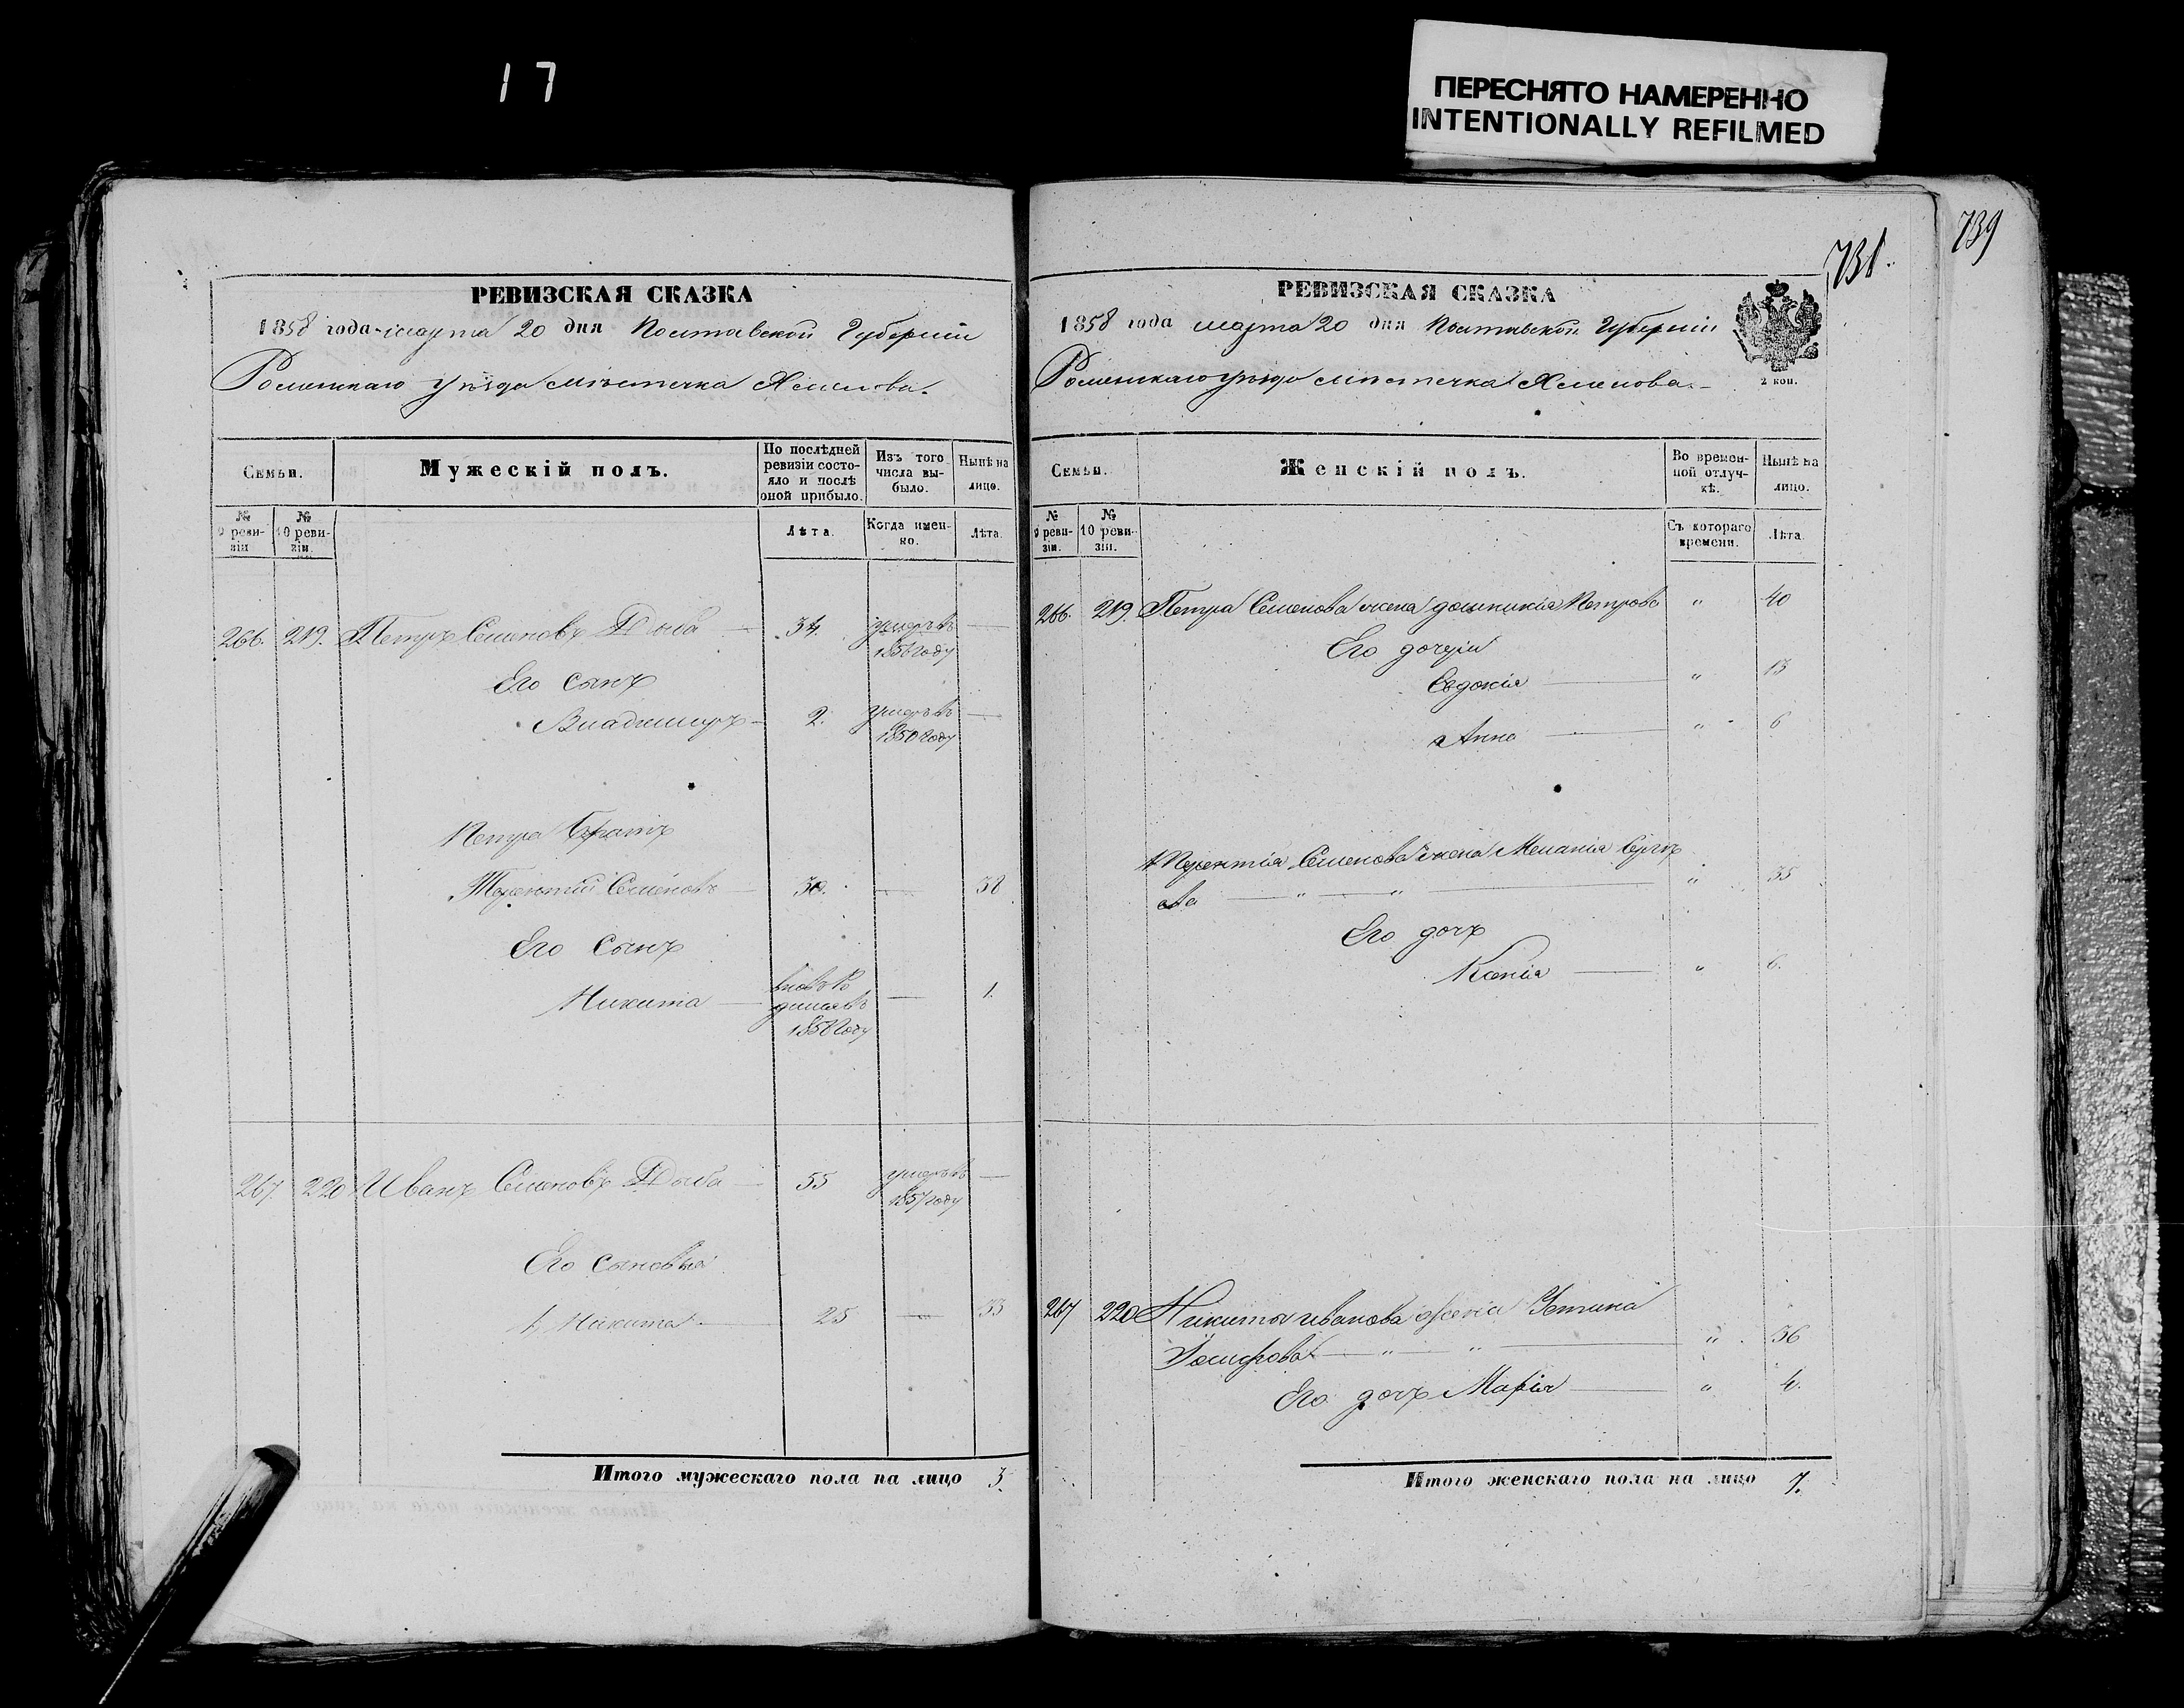 17
ПЕРЕСНЯТО НАМЕРЕННО
INTENTIONALLY REFILMED
РЕВИЗСКАЯ СКАЗКА
1858 года марта 20 дня Полтавской Губерніи
Роменскаго уѣзда мѣстечка
Семьи.
Мужескій полъ.
По послѣдней ревизіи состояло и послѣ оной прибыло.
Изъ того числа выбыло.
Нынѣ на лицо.
№ 9 ревизіи
№ 10 ревизіи.
Лѣта.
Когда именно.
Лѣта.
266. 219. Петръ Семеновъ Дыба 34. умеръ въ 1856 году
Его сынъ
Владимиръ 2. умеръ въ 1850 году
Петра братъ
Терентій Семеновъ 30. 38
Его сынъ
Никита 1.
267 220 Иванъ Семеновъ Дыба 55 умеръ въ 1857 году
Его сыновья
1, Никита 25 33
Итого мужескаго пола на лицо 3.
739
731.
РЕВИЗСКАЯ СКАЗКА
1858 года марта 20 дня Полтавской Губерніи
Роменскаго уѣзда мѣстечка
2 коп.
Семьи.
Женскій полъ.
Во временной отлучкѣ.
Нынѣ на лицо.
№ 9 ревизіи.
№ 10 ревизіи.
Съ котораго времени.
Лѣта.
266. 219. Петра Семенова жена Петрова " 40
Его дочери
Евдокія " 13
Анна " 6
Терентія Семенова жена Меланія
ва " " " 35
Его дочь
Ксенія " 6.
267 220 Никиты Иванова жена Устина
Іосифова " " " 36
Его дочь Марія " 4.
Итого женскаго пола на лицо 7.